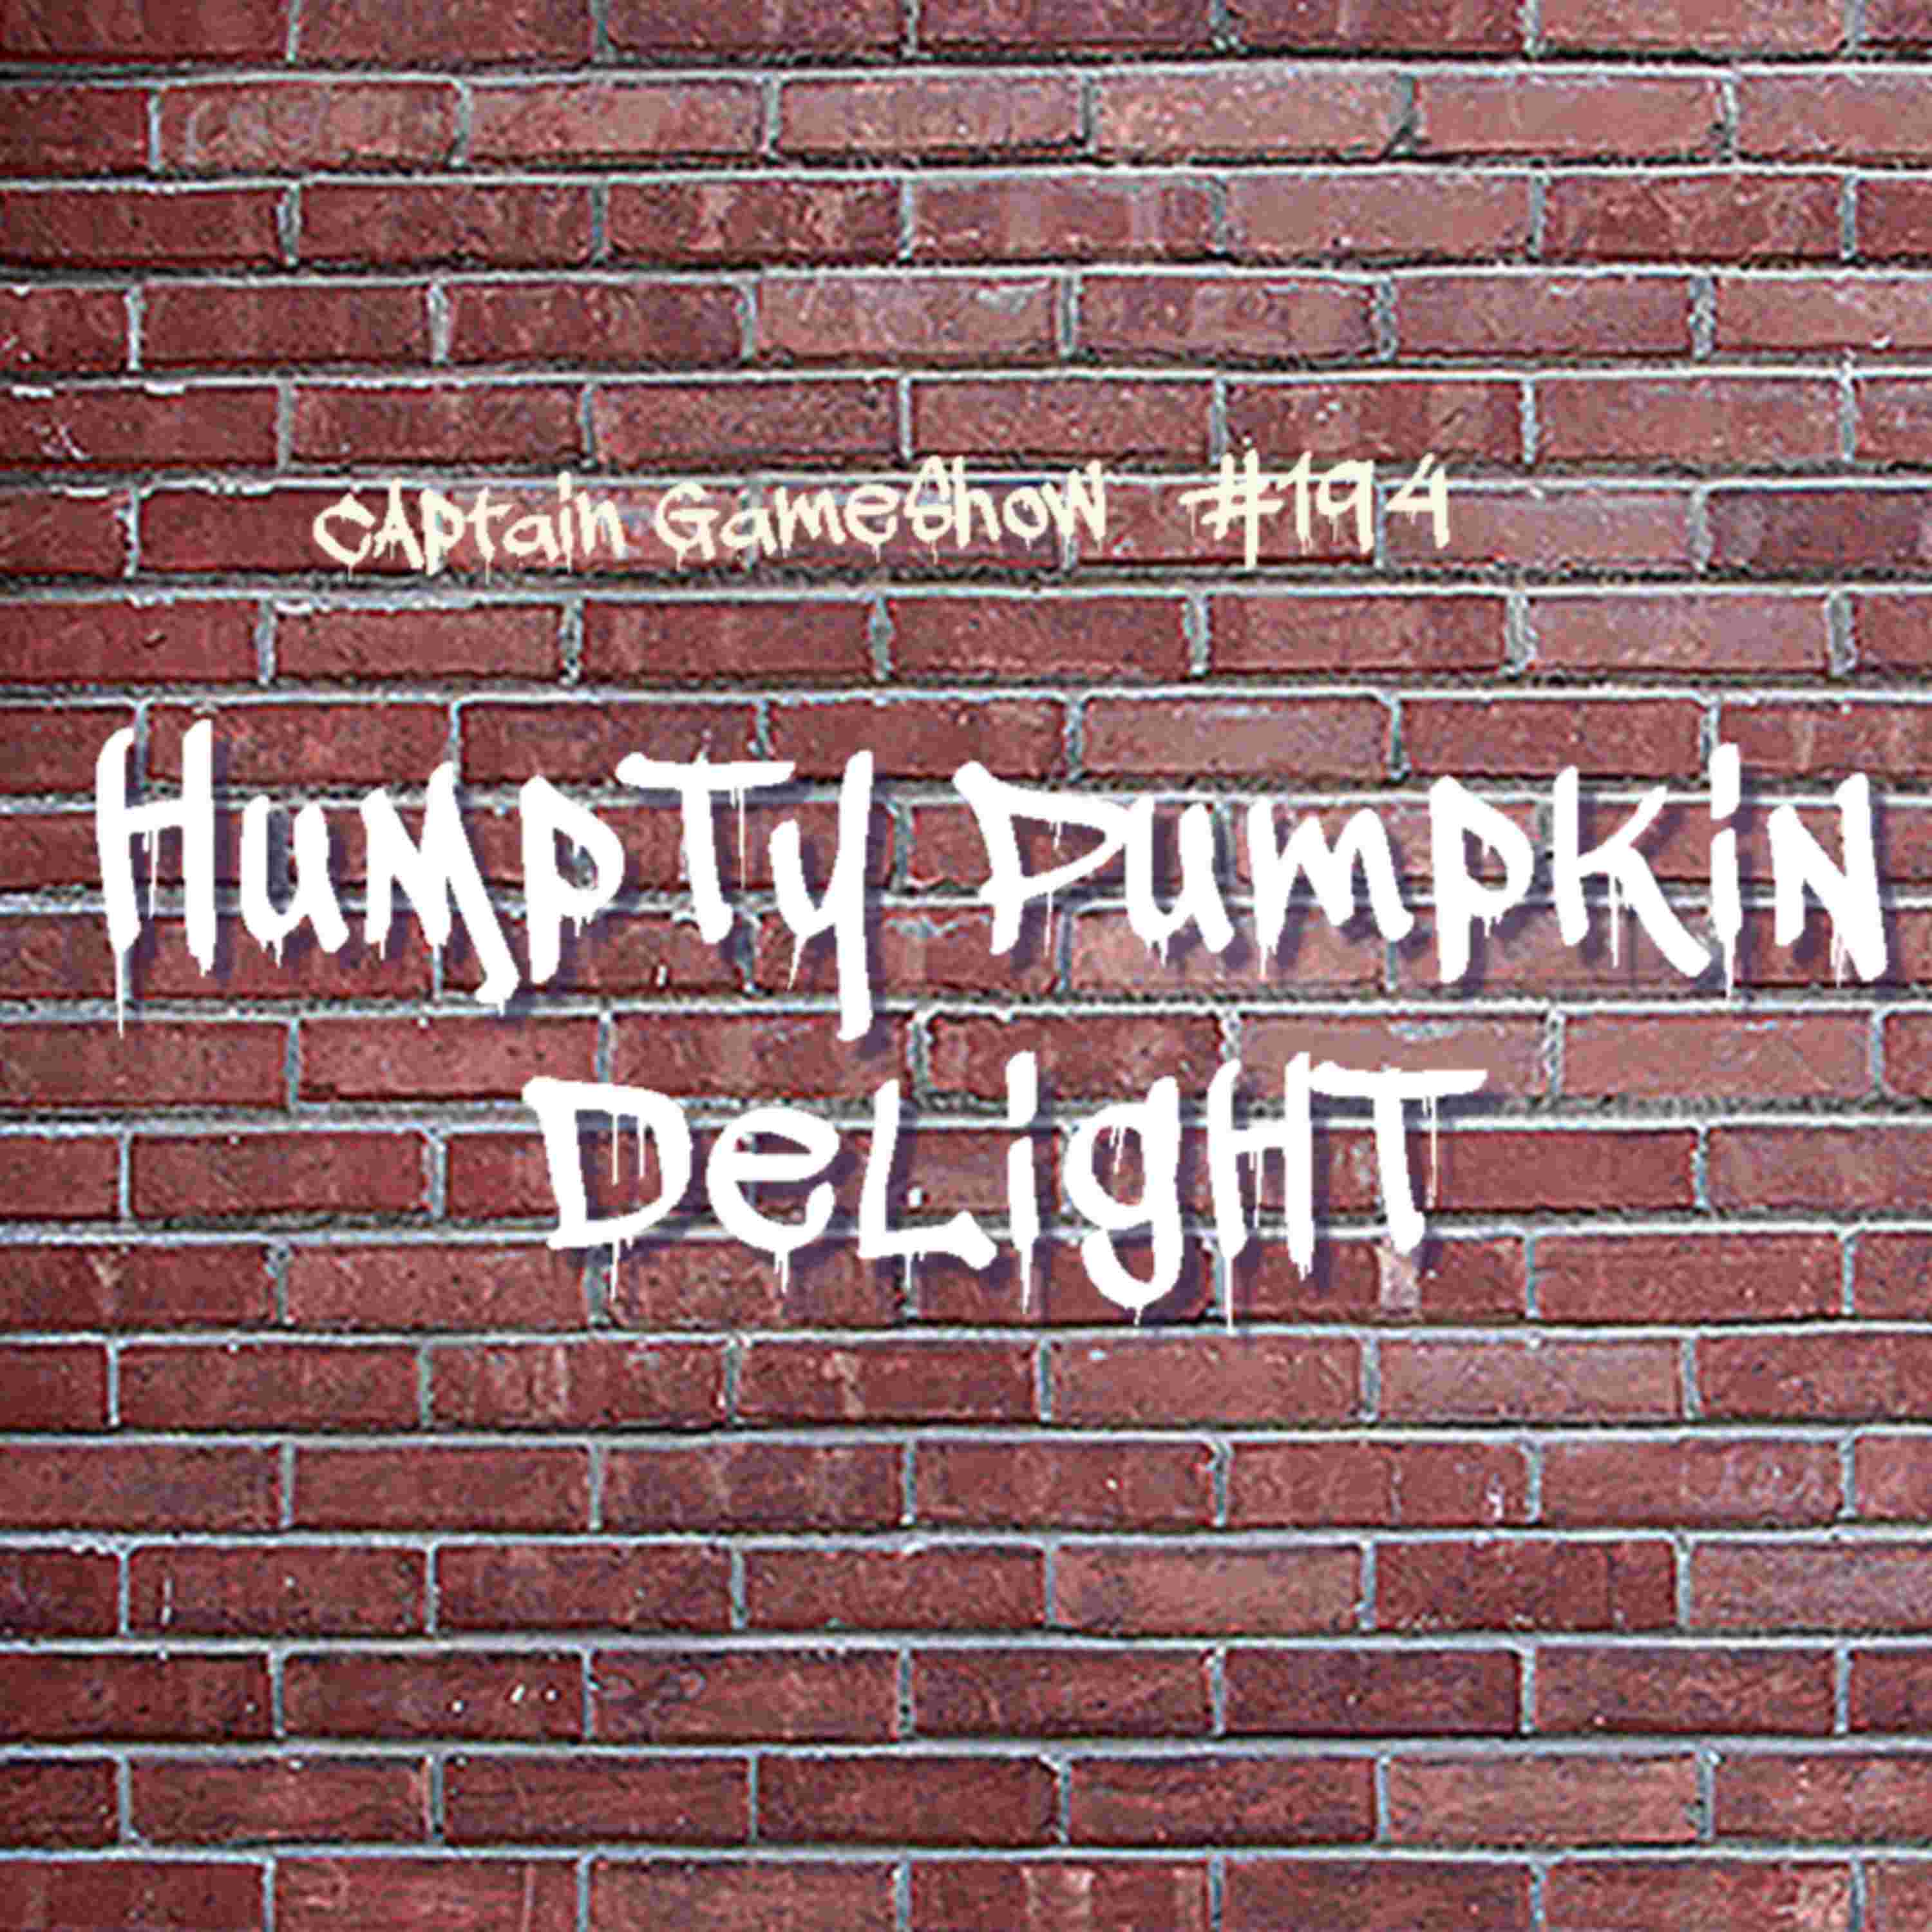 Captain GameShow #194
Humpty Pumpkin
Delight